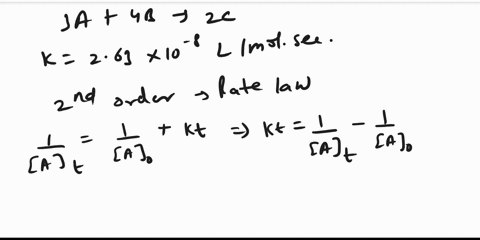 3A + 4B → 2C
K = 2.63 × 10⁻⁸ L/mol.sec.
2nd order → Rate law
1/[A]t = 1/[A]0 + Kt ⇒ Kt = 1/[A]t − 1/[A]0